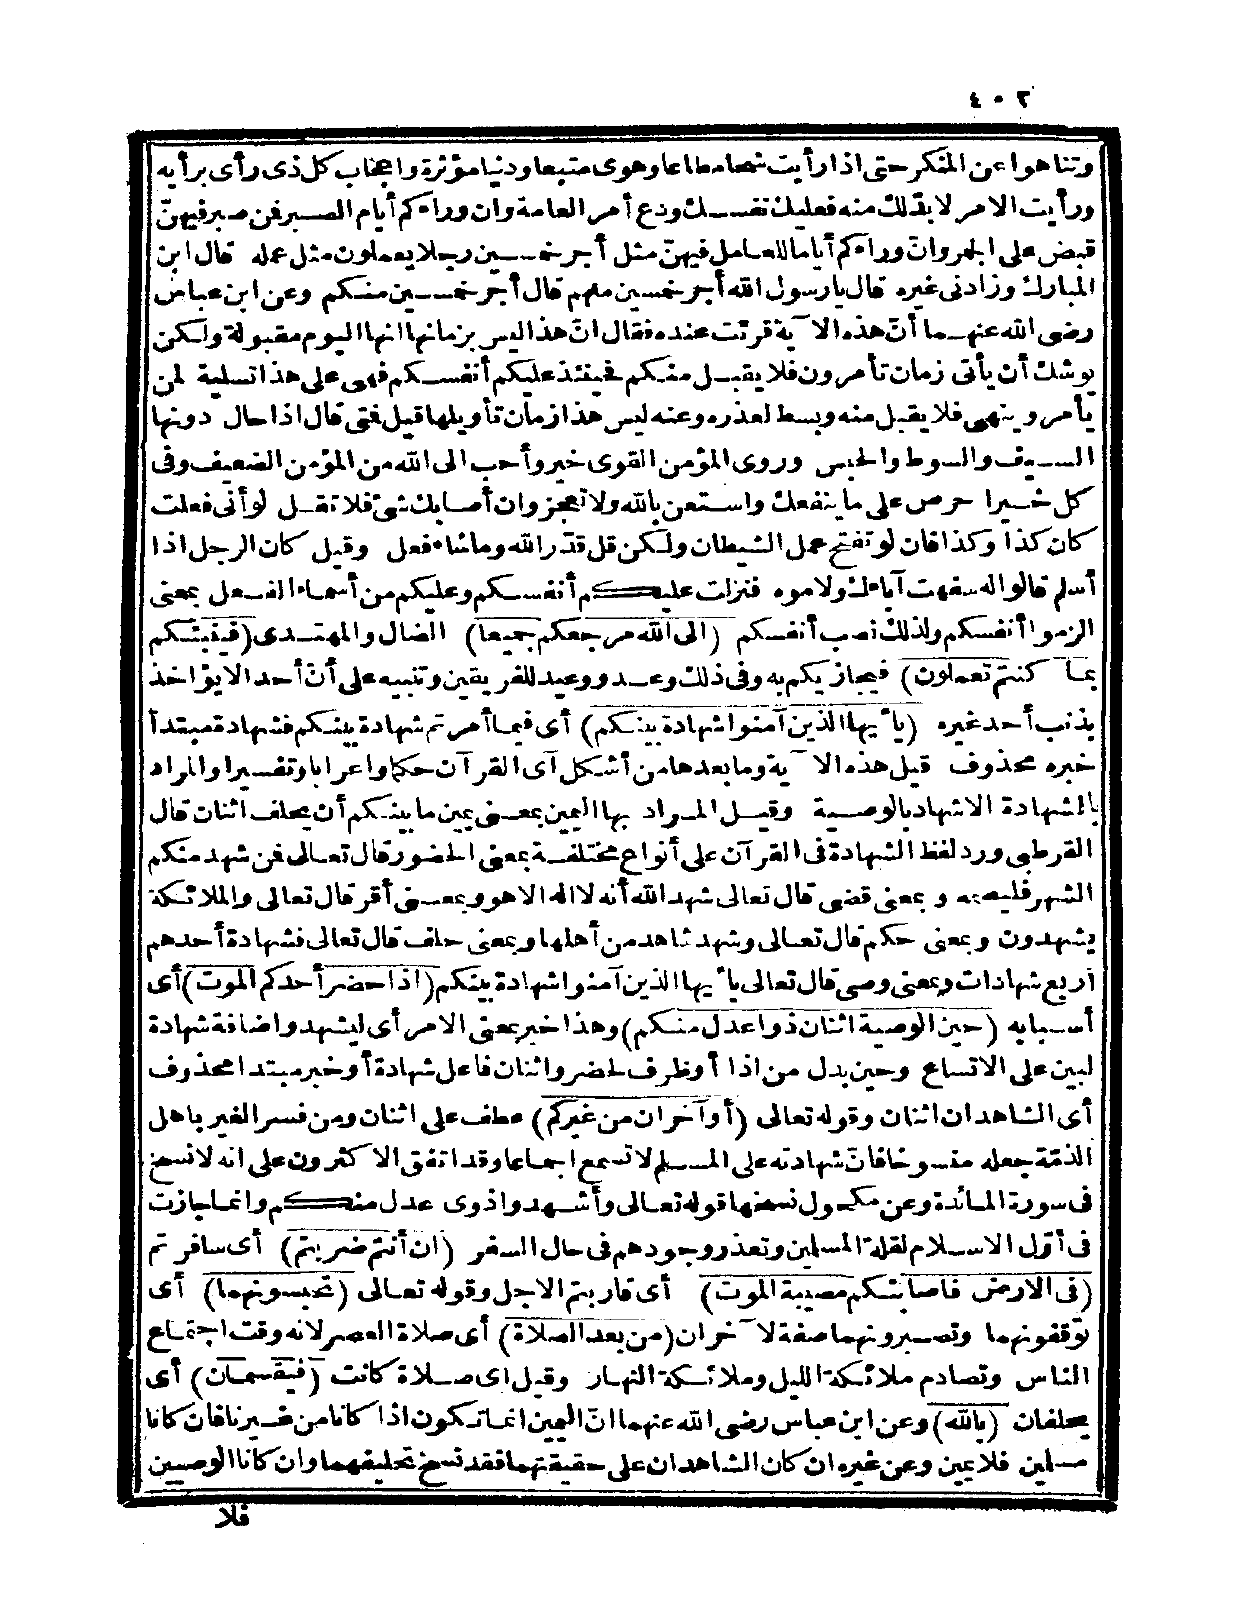 ٤٠٢
وتناهوا عن المنكر حتى اذا رأيت شحا مطاعا وهوى متبعا ودنيا مؤثرة واعجاب كل ذى رأى برأيه
ورأيت الامر لا بدّ لك منه فعليك نفسك ودع أمر العامة وان وراءكم أيام الصبر فمن صبر فيهنّ
قبض على الجمر وانّ وراءكم أياما للعامل فيهنّ مثل أجر خمسين رجلا يعملون مثل عمله قال ابن
المبارك وزادنى غيره قال يا رسول الله أجر خمسين منهم قال أجر خمسين منكم وعن ابن عباس
رضى الله عنهما أنّ هذه الآية قرئت عنده فقال انّ هذا ليس بزمانها انها اليوم مقبولة ولكن
يوشك أن يأتى زمان تأمرون فلا يقبل منكم فحينئذ عليكم أنفسكم فهى على هذا تسلية لمن
يأمر وينهى فلا يقبل منه وبسط لعذره وعنه ليس هذا زمان تأويلها قيل فمتى قال اذا حال دونها
السيف والسوط والحبس وروى المؤمن القوى خير وأحب الى الله من المؤمن الضعيف وفى
كل خيرا حرص على ما ينفعك واستعن بالله ولا تعجز وان أصابك شئ فلا تقل لو أنى فعلت
كان كذا وكذا فان لو تفتح عمل الشيطان ولكن قل قدّر الله وما شاء فعل وقيل كان الرجل اذا
أسلم قالوا له سفهت آباءك ولاموه فنزلت عليكم أنفسكم وعليكم من أسماء الفعل بمعنى
الزموا أنفسكم ولذلك نصب أنفسكم (الى الله مرجعكم جميعا) الضال والمهتدى (فينبئكم
بما كنتم تعملون) فيجازيكم به وفى ذلك وعد ووعيد للفريقين وتنبيه على أنّ أحد الا يؤاخذ
بذنب أحد غيره (يأيها الذين آمنوا شهادة بينكم) أى فيما أمرتم شهادة بينكم فشهادة مبتدأ
خبره محذوف قيل هذه الآية وما بعدها من أشكل آى القرآن حكما واعرابا وتفسيرا والمراد
بالشهادة الاشهاد بالوصية وقيل المراد بها اليمين بمعنى يمين ما بينكم أن يحلف اثنان قال
القرطبى ورد لفظ الشهادة فى القرآن على أنواع مختلفة بمعنى الحضور قال تعالى فمن شهد منكم
الشهر فليصمه وبمعنى قضى قال تعالى شهد الله أنه لا اله الا هو وبمعنى أقر قال تعالى والملائكة
يشهدون وبمعنى حكم قال تعالى وشهد شاهد من أهلها وبمعنى حلف قال تعالى فشهادة أحدهم
أربع شهادات وبمعنى وصى قال تعالى يأيها الذين آمنوا شهادة بينكم (اذا حضر أحدكم الموت) أى
أسبابه (حين الوصية اثنان ذوا عدل منكم) وهذا خبر بمعنى الامر أى ليشهد واضافة شهادة
لبين على الاتساع وحين بدل من اذا أو ظرف لحضر واثنان فاعل شهادة أو خبر مبتدا محذوف
أى الشاهدان اثنان وقوله تعالى (أو آخران من غيركم) عطف على اثنان ومن فسر الغير باهل
الذمّة جعله منسوخا فانّ شهادته على المسلم لا تسمع اجماعا وقد اتفق الاكثرون على انه لا نسخ
فى سورة المائدة وعن مكحول نسخها قوله تعالى وأشهدوا ذوى عدل منكم وانما جازت
فى أوّل الاسلام لقلة المسلمين وتعذر وجودهم فى حال السفر (ان أنتم ضربتم) أى سافرتم
(فى الارض فاصابتكم مصيبة الموت) أى قاربتم الاجل وقوله تعالى (تحبسونهما) أى
توقفونهما وتصبرونهما صفة لآخران (من بعد الصلاة) أى صلاة العصر لانه وقت اجتماع
الناس وتصادم ملائكة الليل وملائكة النهار وقيل اى صلاة كانت (فيقسمان) أى
يحلفان (بالله) وعن ابن عباس رضى الله عنهما انّ اليمين انما تكون اذا كانا من غيرنا فان كانا
مسلمين فلا يمين وعن غيره ان كان الشاهدان على حقيقتهما فقد نسخ تحليفهما وان كانا الوصيين
فلا